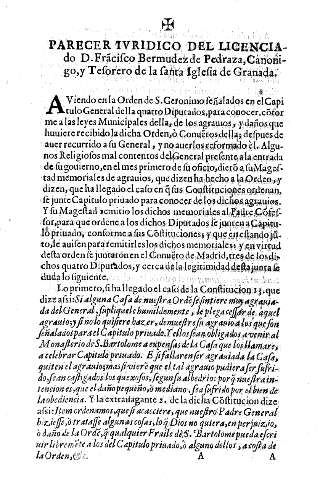 PARECER IVRIDICO DEL LICENCIA-
do D. Frãcisco Bermudez de Pedraza, Canoni-
go, y Tesorero de la santa Iglesia de Granada.
AViendo en la Orden de S. Geronimo señalados en el Capi
tulo General della quatro Diputados, para conocer, cõfor
me a las leyes Municipales della, de los agrauios, y daños que
huuiere recibido la dicha Orden, ò Conuẽtos della; despues de
auer recurrido a su General, y no auerlos reformado èl. Algu-
nos Religiosos mal contentos del General presente a la entrada
de su gouierno, en el mes primero de su oficio, dierõ a su Mages
tad memoriales de agrauios, que dizen ha hecho a la Orden, y
dizen, que ha llegado el caso en q̃ sus Constituciones ordenan,
se junte Capitulo priuado para conocer de los dichos agrauios.
Y su Magestad admitio los dichos memoriales al Padre Cõfes-
sor, para que ordene a los dichos Diputados se junten a Capitu-
lo priuado, conforme a sus Constituciones; y que estando jũ-
to, le auisen para remitirles los dichos memoriales; y en virtud
desta orden se juntaron en el Conuẽto de Madrid, tres de los di-
chos quatro Diputados, y cerca de la legitimidad desta junta se
duda lo siguiente.
Lo primero, si ha llegado el caso de la Constitucion 13. que
dize assi: Si alguna Casa de nuestra Ordẽ se sintiere muy agrauia-
da del General, supliquele humildemente, le plega cessar de aquel
agrauio; y si no lo quisiere hazer, demuestre su agrauio a los que son
señalados para el Capitulo priuado. Y ellos sean obligados a venir al
Monasterio de S. Bartolome a expensas de la Casa que los llamare,
a celebrar Capitulo priuado. E si fallaren ser agrauiada la Casa,
quiten el agrauio; mas si vierẽ que el tal agrauio pudiera ser sufri-
do, sean castigados los quexosos, segun su albedrio: porq̃ nuestra in-
tencion es, que el daño pequeño, ò mediano, sea sofrido por el bien de
la obediencia. Y la extrauagante 2. de la dicha Cõstitucion dize
assi: Item ordenamos, que si acaeciere, que nuestro Padre General
biziesse, ò tratasse algunas cosas, lo q̃ Dios no quiera, en perjuizio,
ò daño de la Ordẽ, q̃ qualquier Fraile de S. Bartolome pueda escri-
uir libremẽte a los del Capitulo priuado, ò alguno dellos, a costa de
la Orden, &c.
A
A